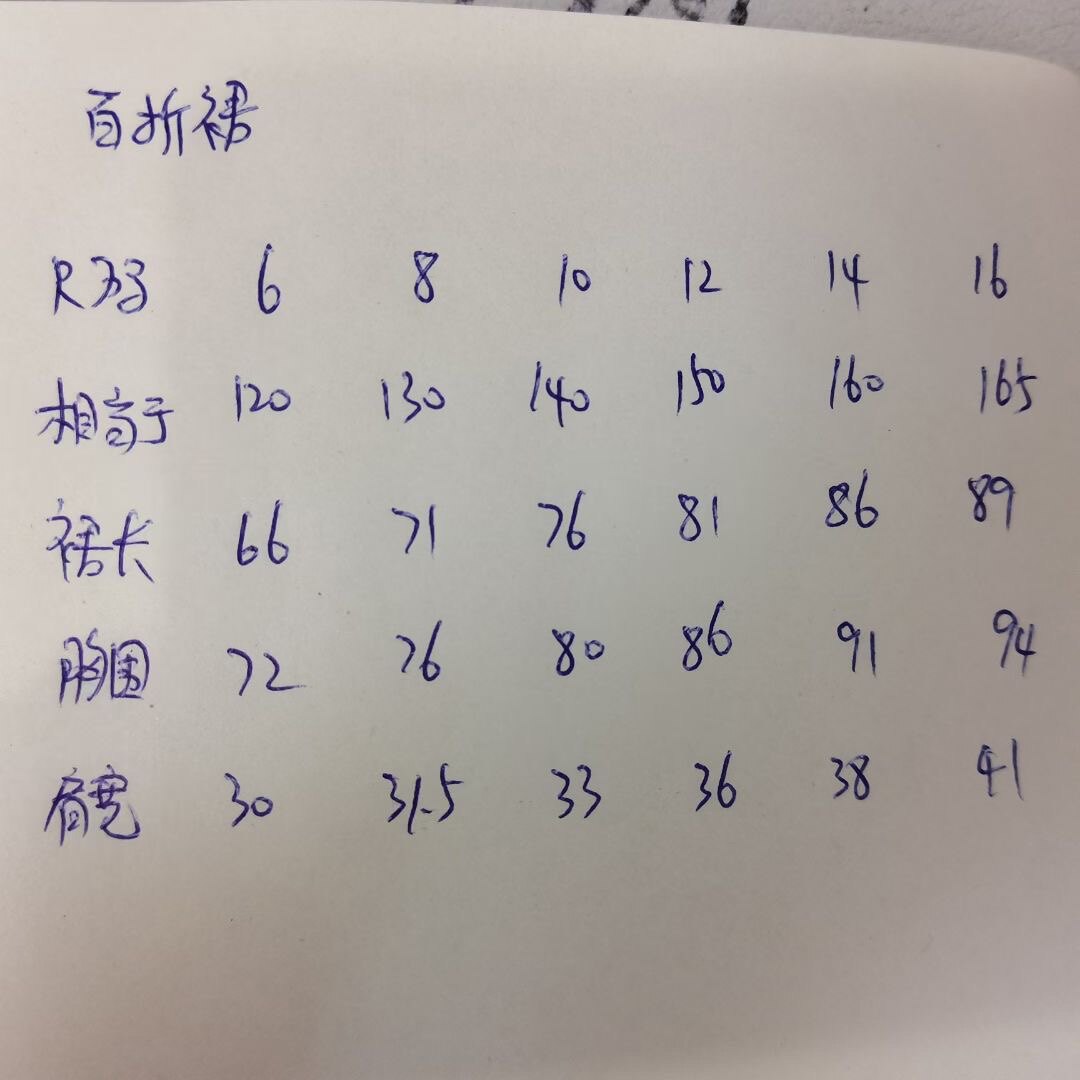 百折裙
尺码 6 8 10 12 14 16
相高于 120 130 140 150 160 165
裙长 66 71 76 81 86 89
胸围 72 76 80 86 91 94
肩宽 30 31.5 33 36 38 41